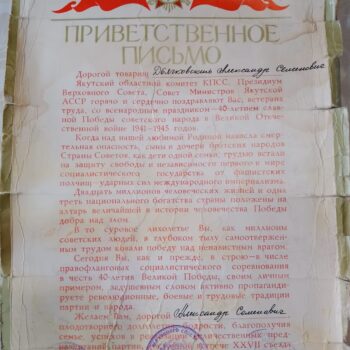 ПРИВЕТСТВЕННОЕ
ПИСЬМО
Дорогой товарищ Дьяковский Александр Семенович
Якутский областной комитет КПСС, Президиум
Верховного Совета, Совет Министров Якутской
АССР горячо и сердечно поздравляют Вас, ветерана
труда, со всенародным праздником – 40-летием слав-
ной Победы советского народа в Великой Отече-
ственной войне 1941-1945 годов.
Когда над нашей любимой Родиной нависла смер-
тельная опасность, сыны и дочери братских народов
Страны Советов, как дети одной семьи, грудью встали
на защиту свободы и независимости первого в мире
социалистического государства от фашистских
полчищ ударных сил международного империализма.
Двадцать миллионов человеческих жизней и одна
треть национального богатства страны положены на
алтарь величайшей в истории человечества Победы
добра над злом.
В то суровое лихолетье Вы, как миллионы
советских людей, в глубоком тылу самоотвержен-
ным трудом ковали победу над ненавистным врагом.
Сегодня Вы, как и прежде, в строю – в числе
правофланговых социалистического соревнования
в честь 40-летия Великой Победы, своим личным
примером, задушевным словом активно пропаганди-
руете революционные, боевые и трудовые традиции
партии и народа.
Желаем Вам, дорогой Александр Семенович
плодотворного долголетия, бодрости, благополучия
семье, успехов в реализации величественных пред-
начертаний партии, достойной встречи XXVII съезда